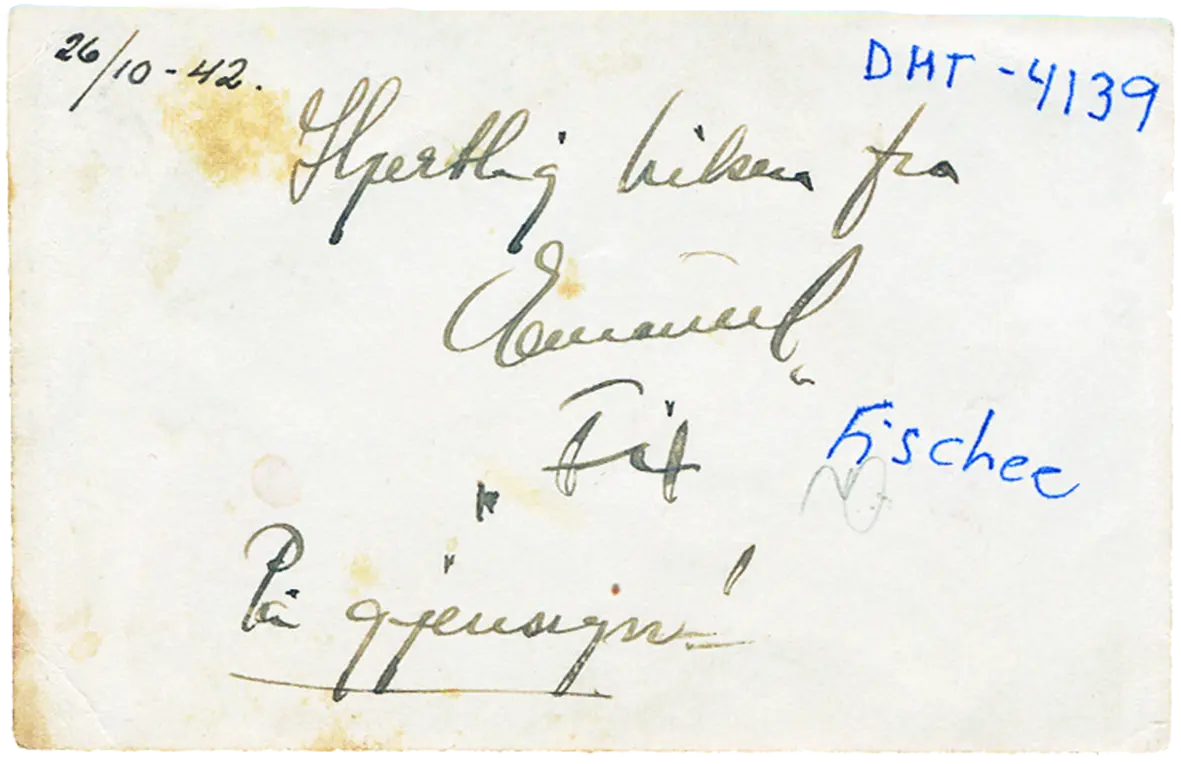 26/10-42.
DHT-4139
Hjertlig hilsen fra
Emanuel
Fischer
På gjensyn!